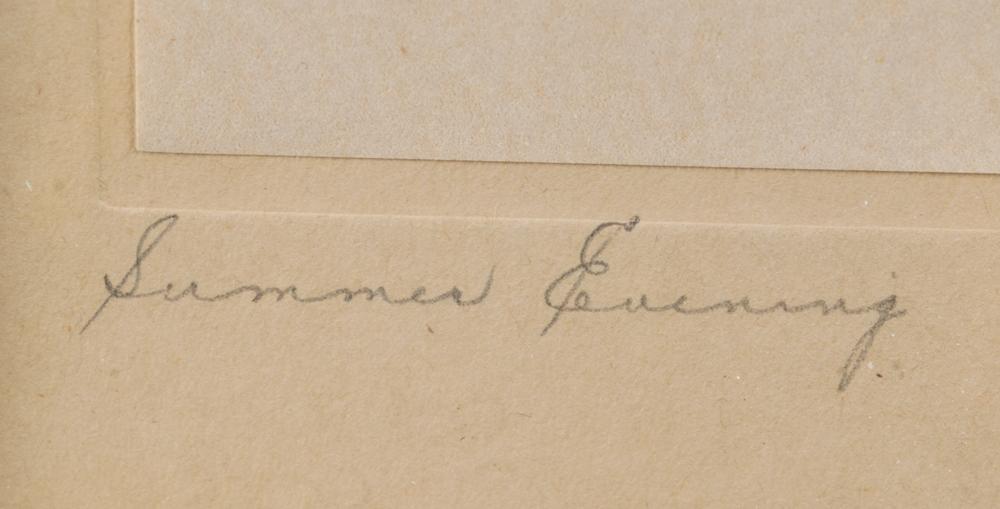 Summer Evening